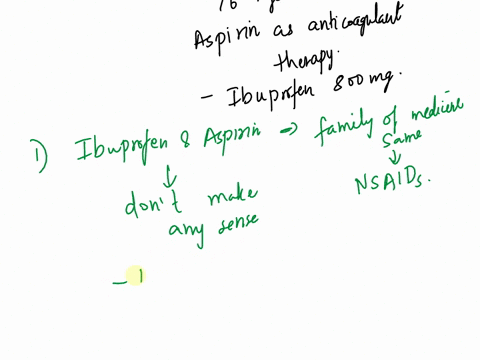 Aspirin as anticoagulant
therapy.
- Ibuprofen 800mg.
1) Ibuprofen & Aspirin → family of medicine
same
↓
↓
NSAIDs.
don't make
any sense
-